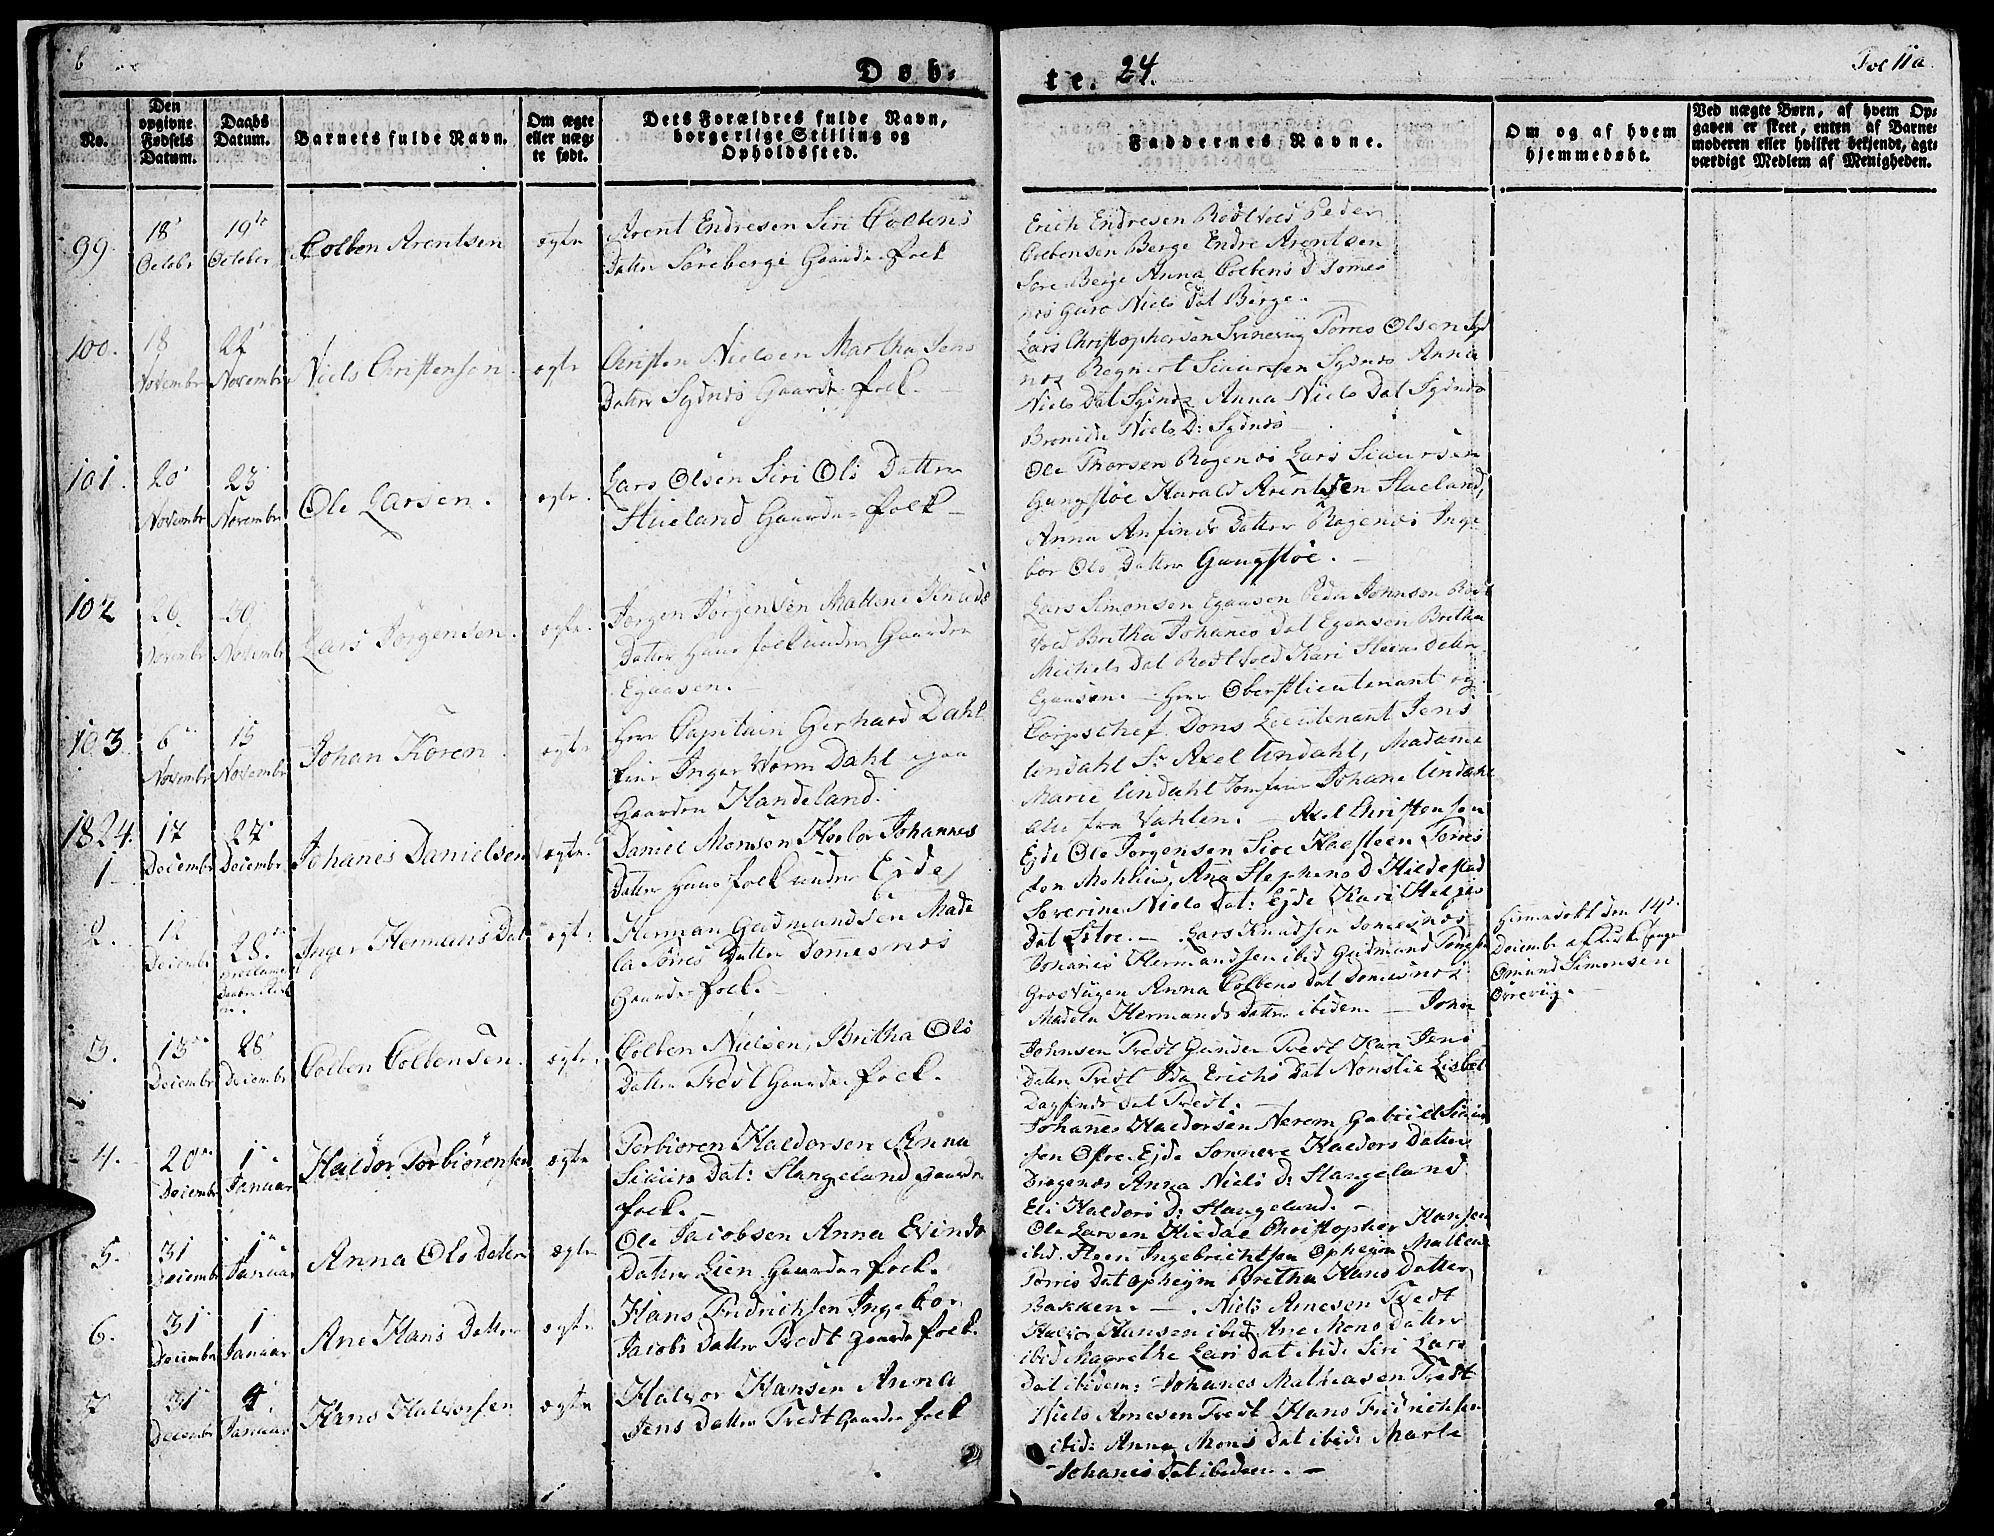 6
Døb-
te. 24.
Fol 11a
No.
Den opgivne Fødsels Datum.
Daabs Datum.
Barnets fulde Navn.
Om ægte eller uægte født.
Dets Forældres fulde Navn, borgerlige Stilling og Opholdssted.
Faddernes Navne.
Om og af hvem hjemmedøbt.
Ved uægte Børn, af hvem Opgaven er skeet, enten af Barnemoderen eller hvilket bekjendt, agtværdigt Medlem af Menigheden.
99.
18 Octobr
19 October
Colben Arentsen
ægte
Arent Endresen Siri Colbens
Datter Søreberge Gaarde-folk
Erich Endresen Rødtvold Peder
Colbensen Berge Endre Arentsen
Søre Berge Anna Colbens D Domes
nes Guro Niels Dat Berge.
100.
18 Novembr
22 Novembr
Niels Christensen
ægte
Christen Nielsen Martha Jens
Datter Sydnes Gaarde-folk.
Lars Christophersen Svinevig Torres Olsen Syd
nes Regnert Siursen Sydnes Anna
Niels Dat Sydnes Anna Niels Dat Sydnes
Niels D: Sydnes
101.
20 Novembr
23 Novembr
Ole Larsen.
ægte.
Lars Olsen Siri Ols Datter
Stueland Gaarde-folk
Ole Thorsen Ragenes Lars Siursen
Gungstøe Harald Arentsen Stueland,
Anna Anfinds Datter Ragenes Inge
bor Ols Datter Gungstøe.
102
Novembr
Novembr
Lars Jørgensen.
ægte.
Jørgen Jørgensen Mallene Knuds
Datter Huus folk under Gaarden
Egaasen.
Lars Simonsen Egaasen Peder Johnsen Rødt
vold Britha Johanes Dat Egaasen Britha
Michels Dat Rødtvold Kari Steens Datter
Egaasen. — Herr Oberstlieutenant og
103
6 Novembr
15 Novembr
Johan Koren
ægte
Herr Capitain Gerhard Dahl
Frue Inger Worm Dahl paa
Gaarden Handeland.
Corpschef Dons Leeutenant Jens
Undahl Sr Axel Undahl, Madame
Marie Undahl Jomfrue Johane Undahl
alle fra Vahlen. — Axel Christensen
1824.
1
17 Decembr
27 Decembr
Johanes Danielsen
ægte.
Daniel Monsen Johannes
Datter Huus folk under Ejde
Ejde Ole Jørgensen Sive Torres
sen Ana Stephens D Hildestad
Severine Niels Dat: Ejde Kari Helges
Dat Støe. — Lars Knudsen Domesnes
2.
12 Decembr
28.
Inger Hermans Dat
ægte
Herman Gudmundsen Made
la Torres Datter Domesnes
Gaarde folk.
Johanes Hermandsen ibid Gudmund
Anna Colbens Dat Domesnes
Madela Hermands Datter ibidem — John
Hiemedøbt den 14
Decembr af
Omund Simonsen
Ørrevig.
3.
13 Decembr
28 Decembr
Colben Colbensen.
ægte.
Colben Nielsen, Britha Ols
Datter Tredt Gaarde folk.
Johnsen Tredt Gunder Tredt Kari Jens
Datter Tredt Ida Erichs Dat Nonslie Lisbet
Dagfinds Dat Tredt.
4.
20 Decembr
1 Januar
Haldor Torbiørensen
ægte
Torbiøren Haldorsen Anna
Siurs Dat: Stangeland Gaarde
folk.
Johanes Haldorsen Nerem Gabriel Siur
sen Øfre Ejde Sønneve Haldors Datter
Dragenes Anna Niels D: Stangeland
Eli Haldors D: Stangeland.
5.
31 Decembr
1 Januar
Anna Ols Datter
ægte
Ole Jacobsen Anna Evinds
Datter Lien Gaarde folk.
Ole Larsen Christopher Hansen
ibid. Steen Ingebrichtsen Opheym Mallene
Torres Dat Opheym Britha Hans Datter
Bakken. — Niels Arnesen Tredt
6.
31 Decembr
1 Januar
Ane Hans Datter
ægte
Hans Fridrichsen Ingebor
Jacobs Datter Tredt Gaarde folk.
Halvor Hansen ibid: Ane Mons Datter
ibid Magrethe Lars Dat ibid: Siri Lars
Dat ibidem: Johanes Mathiasen Tredt
7
31 Decembr
4 Januar
Hans Halvorsen
ægte
Halvor Hansen Anna
Jens Datter Tredt Gaarde folk
Niels Arnesen Tredt Hans Fridrichsen
ibid: Anna Mons Dat ibid: Marte
Johanes Dat ibidem. —